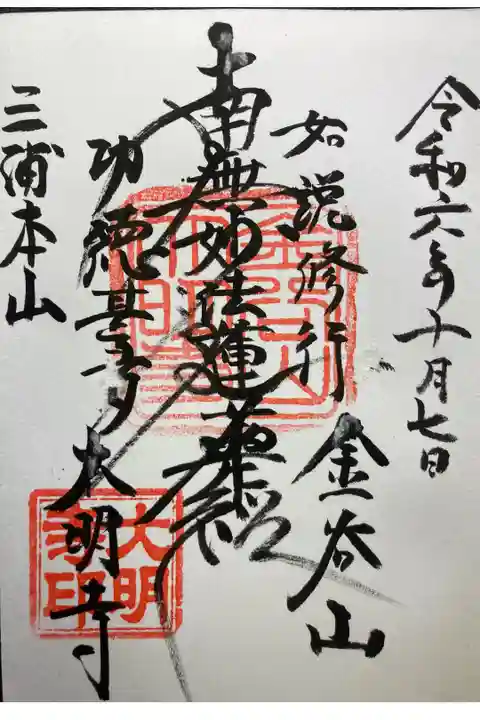 令和六年十月七日
如説修行
金谷山
南無妙法蓮華経
功徳甚多
大明寺
三浦本山
大明
寺印